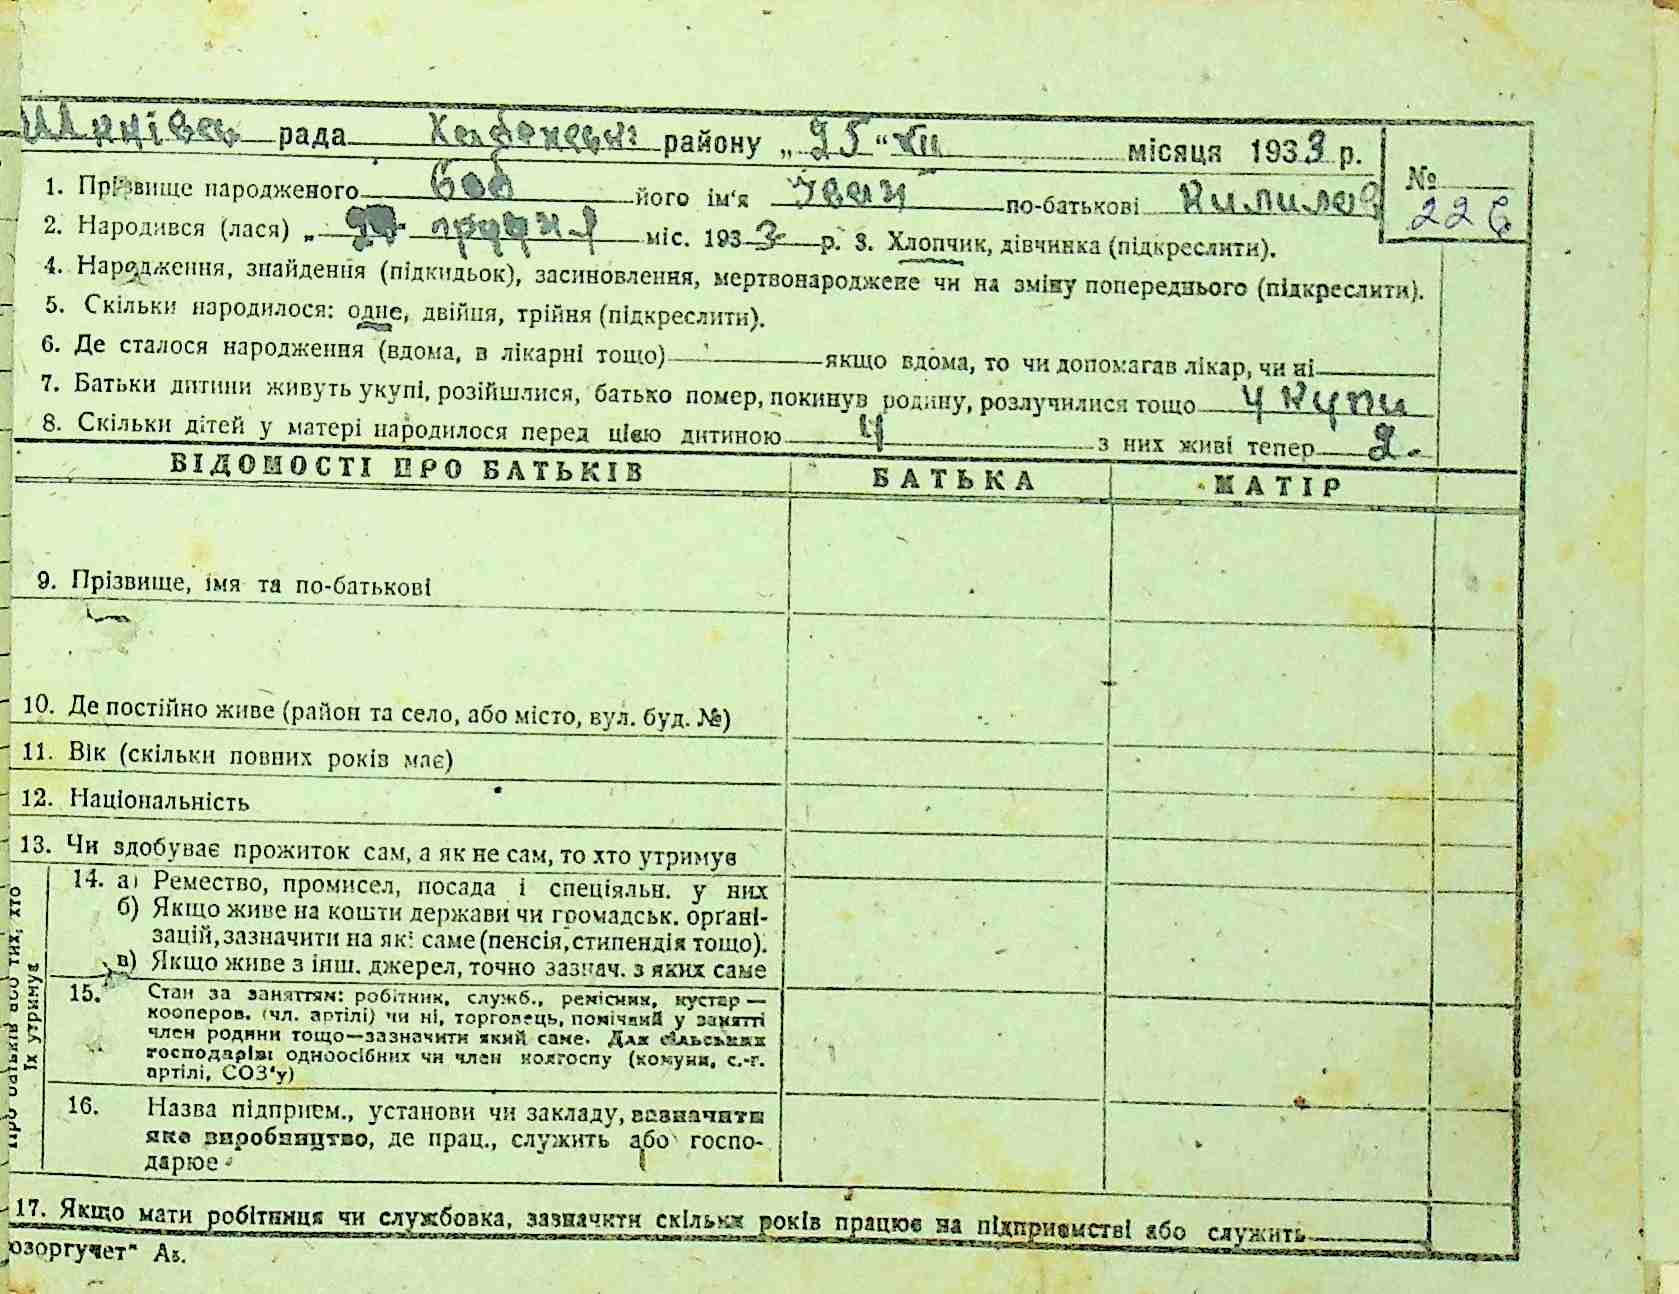 рада району „25“ XII місяця 1933 р.
№ 226
1. Прізвище народженого Боб його ім'я Іван по-батькові Пилипов
2. Народився (лася) „ грудня міс. 1933 р. 3. Хлопчик, дівчинка (підкреслити).
4. Народження, знайдення (підкидьок), засиновлення, мертвонароджене чи на зміну попереднього (підкреслити).
5. Скільки народилося: одне, двійня, трійня (підкреслити).
6. Де сталося народження (вдома, в лікарні тощо) якщо вдома, то чи допомагав лікар, чи ні
7. Батьки дитини живуть укупі, розійшлися, батько помер, покинув родину, розлучилися тощо укупи
8. Скільки дітей у матері народилося перед цією дитиною 4 з них живі тепер 2.
ВІДОМОСТІ ПРО БАТЬКІВ БАТЬКА МАТІР
9. Прізвище, імя та по-батькові
10. Де постійно живе (район та село, або місто, вул. буд. №)
11. Вік (скільки повних років має)
12. Національність
13. Чи здобуває прожиток сам, а як не сам, то хто утримує
Про батьків або тих, хто
їх утримує
14. а) Ремество, промисел, посада і спеціяльн. у них
б) Якщо живе на кошти держави чи громадськ. орґані-
зацій, зазначити на які саме (пенсія, стипендія тощо).
в) Якщо живе з інш. джерел, точно зазнач. з яких саме
15. Стан за заняттям: робітник, служб., ремісник, кустар —
кооперов. (чл. артілі) чи ні, торговець, помічний у занятті
член родини тощо—зазначити який саме. Для сільських
господарів: одноосібних чи член колгоспу (комуни, с.-г.
артілі, СОЗ'у)
16. Назва підприєм., установи чи закладу, зазначити
яке виробництво, де прац., служить або госпо-
дарює
17. Якщо мати робітниця чи службовка, зазначити скільки років працює на підприємстві або служить
юзоргучет" Аз.